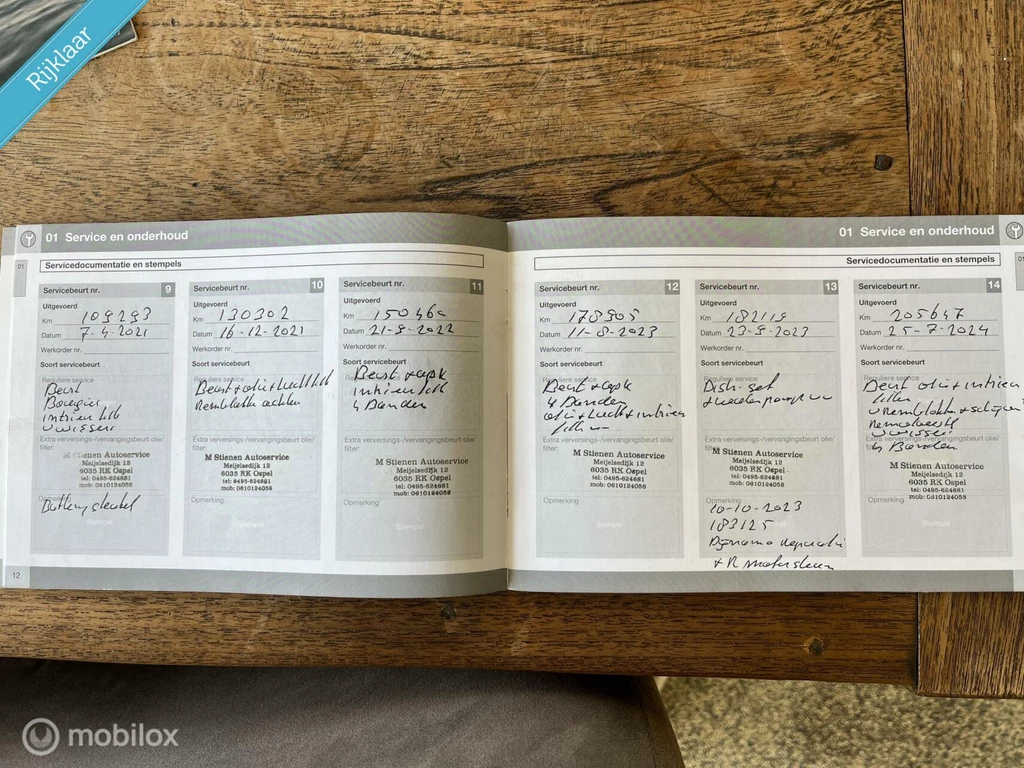 Rijklaar
01 Service en onderhoud
01
Servicedocumentatie en stempels
Servicebeurt nr. 9
Uitgevoerd
Km 109293
Datum 7-4-2021
Werkorder nr.
Soort servicebeurt
Reguliere service
Beurt
Bougies
Extra verversings-/vervangingsbeurt olie/
filter:
M Stienen Autoservice
Meijelsedijk 12
6035 RK Ospel
tel: 0495-624681
mob: 0610124058
Stempel
12
Servicebeurt nr. 10
Uitgevoerd
Km 130302
Datum 16-12-2021
Werkorder nr.
Soort servicebeurt
Reguliere service
Extra verversings-/vervangingsbeurt olie/
filter:
M Stienen Autoservice
Meijelsedijk 12
6035 RK Ospel
tel: 0495-624681
mob: 0610124058
Opmerking
Stempel
Servicebeurt nr. 11
Uitgevoerd
Km
Datum 21-9-2022
Werkorder nr.
Soort servicebeurt
Reguliere service
Beurt + apk
4 Banden
Extra verversings-/vervangingsbeurt olie/
filter:
M Stienen Autoservice
Meijelsedijk 12
6035 RK Ospel
tel: 0495-624681
mob: 0610124058
Opmerking
Stempel
01 Service en onderhoud
01
Servicedocumentatie en stempels
Servicebeurt nr. 12
Uitgevoerd
Km 178905
Datum 11-8-2023
Werkorder nr.
Soort servicebeurt
Reguliere service
Beurt + apk
4 Banden
Extra verversings-/vervangingsbeurt olie/
filter:
M Stienen Autoservice
Meijelsedijk 12
6035 RK Ospel
tel: 0495-624681
mob: 0610124058
Opmerking
Stempel
Servicebeurt nr. 13
Uitgevoerd
Km 182119
Datum 23-9-2023
Werkorder nr.
Soort servicebeurt
Reguliere service
Distr. set
+ waterpomp
Extra verversings-/vervangingsbeurt olie/
filter:
M Stienen Autoservice
Meijelsedijk 12
6035 RK Ospel
tel: 0495-624681
mob: 0610124058
Opmerking
10-10-2023
183125
Dynamo reparatie
+ R motorsteun
Servicebeurt nr. 14
Uitgevoerd
Km 205647
Datum 25-7-2024
Werkorder nr.
Soort servicebeurt
Reguliere service
Beurt olie + intrieu
4 Banden
Extra verversings-/vervangingsbeurt olie/
filter:
M Stienen Autoservice
Meijelsedijk 12
6035 RK Ospel
tel: 0495-624681
mob: 0610124058
Opmerking
Stempel
mobilox